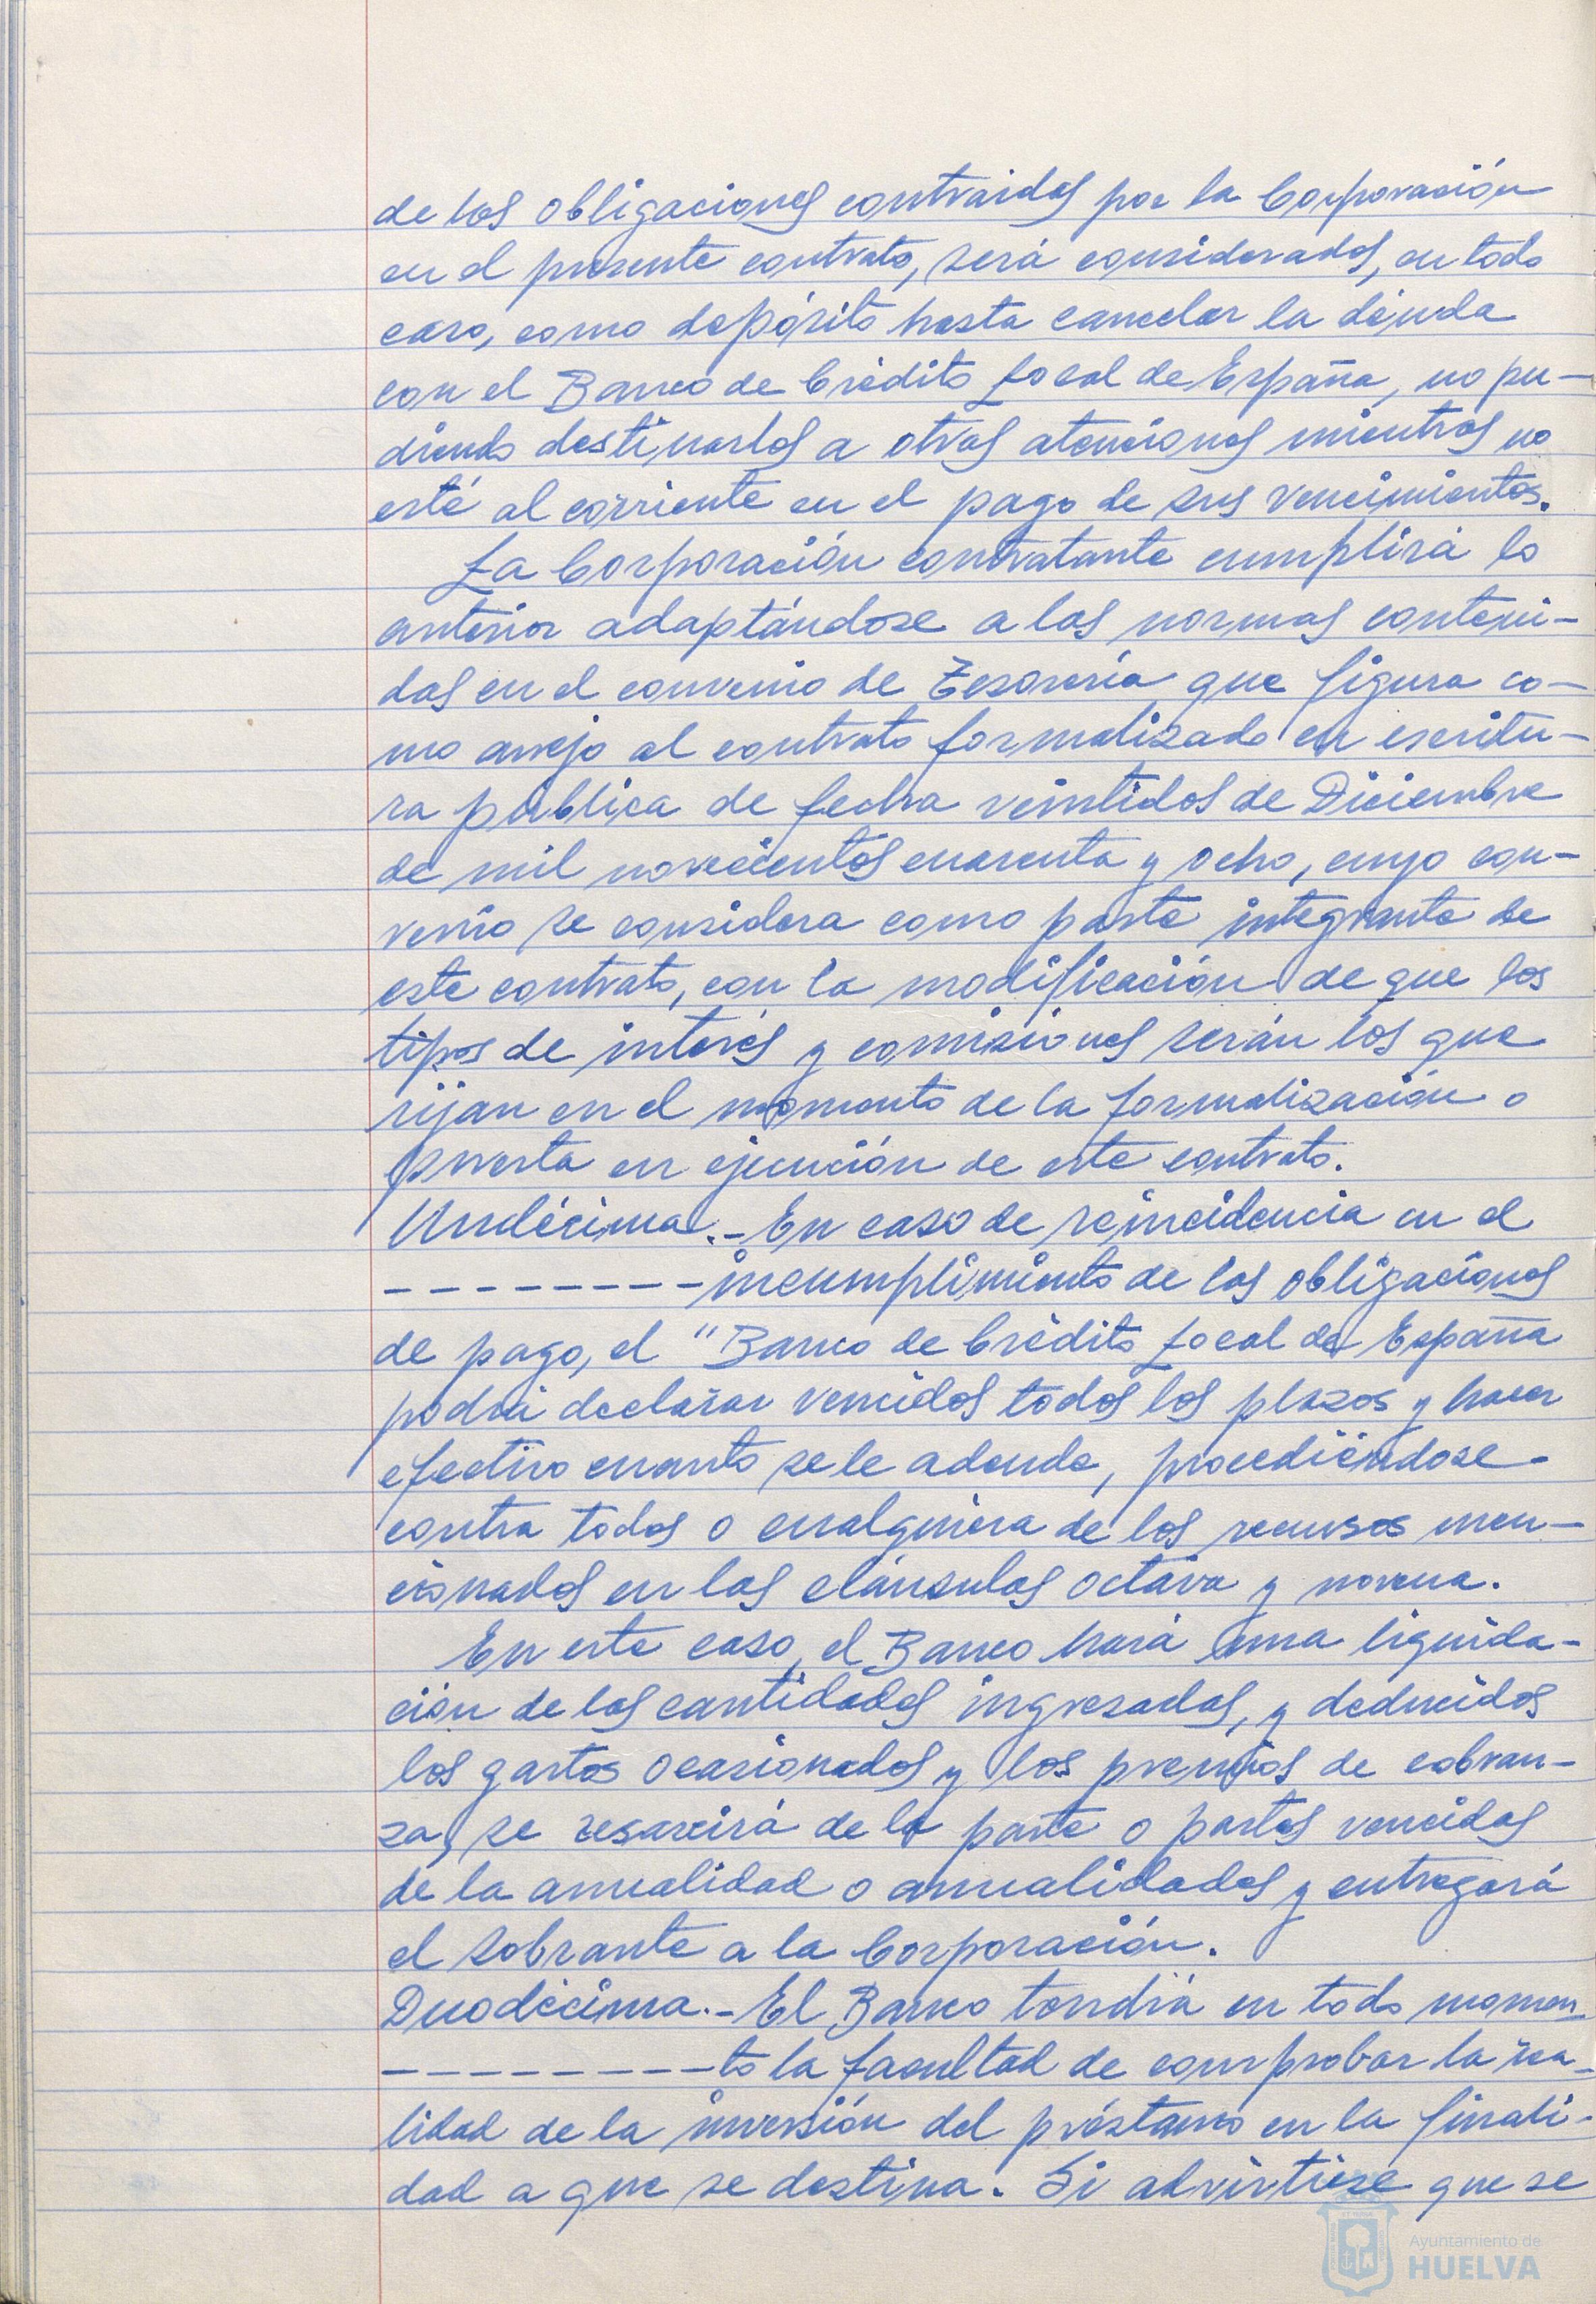 de las obligaciones contraidas por la Corporación
en el presente contrato, será considerados, en todo
caso, como depósito hasta cancelar la deuda
con el Banco de Crédito Local de España, no pu-
diendo destinarlos a otras atenciones mientras no
esté al corriente en el pago de sus vencimientos.
La Corporación contratante cumplirá lo
anterior adaptándose a las normas conteni-
das en el convenio de Tesorería que figura co-
mo anejo al contrato formalizado en escritu-
ra pública de fecha veintidos de Diciembre
de mil novecientos cuarenta y ocho, cuyo con-
venio se considera como parte integrante de
este contrato, con la modificación de que los
tipos de interés y comisiones serán los que
rijan en el momento de la formalización o
puesta en ejecución de este contrato.
Undécima.- En caso de reincidencia en el
--------incumplimiento de las obligaciones
de pago, el "Banco de Crédito Local de España
podrá declarar vencidos todos los plazos y hacer
efectivo cuanto se le adeude, procediéndose-
contra todos o cualquiera de los recursos men-
cionados en las cláusulas octava y novena.
En este caso, el Banco hará una liquida-
ción de las cantidades ingresadas, y deducidos
los gastos ocasionados y los premios de cobran-
za, se resarcirá de la parte o partes vencidas
de la anualidad o anualidades y entregará
el sobrante a la Corporación.
Duodécima.- El Banco tendrá en todo momen-
---------to la facultad de comprobar la rea-
lidad de la inversión del préstamo en la finali-
dad a que se destina. Si advirtiese que se
Ayuntamiento de
HUELVA